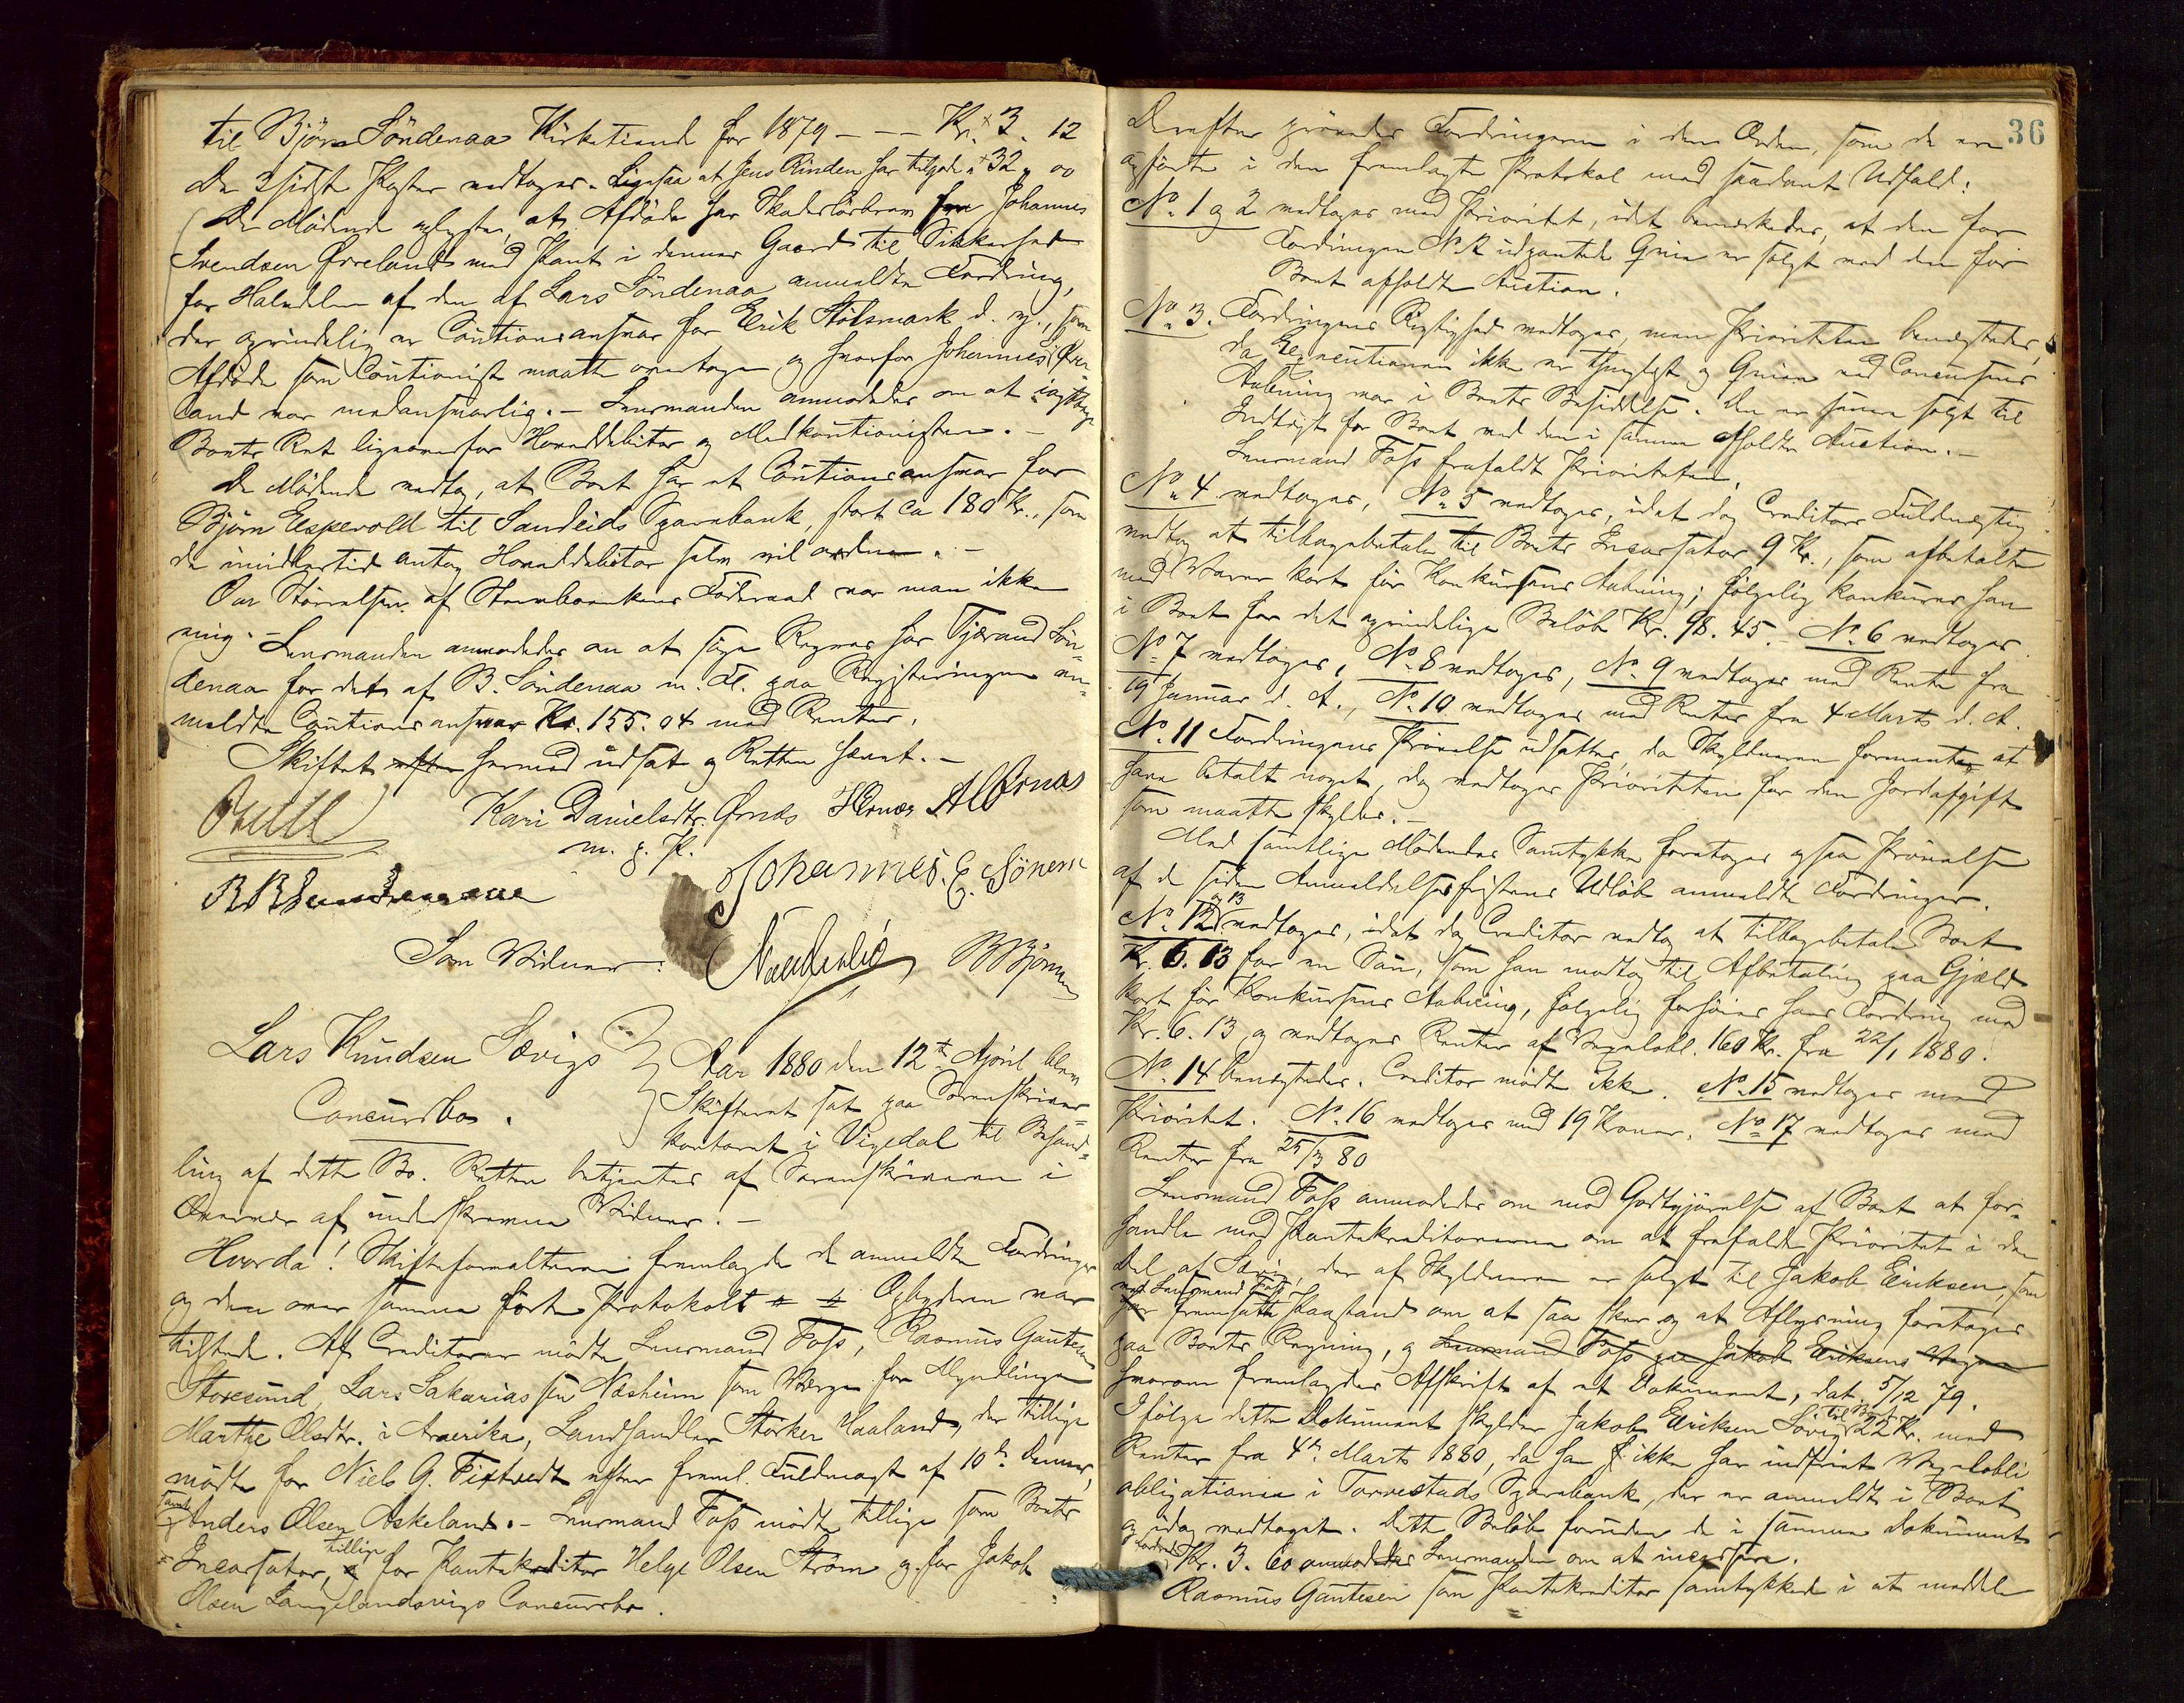 til Björn Söndenaa Kirketiende for 1879 - - - Kr. 3. 12
De 2 sidste Poster vedtoges. Ligesaa at Jens Rinden har tilgode " 32 " 00
De Mödende oplyste, at Afdöde har Skadeslösbrev fra Johannes
Svendsen Øvreland med Pant i dennes Gaard til Sikkerhed
for Halvdelen af den af Lars Söndenaa anmeldte Fordring,
der oprindelig er Cautionsansvar for Erik Stölsmark d. y., som
Afdöde som Cautionist maatte overtage og hvorfor Johannes Øvre-
land var medansvarlig. - Lensmanden anmodedes om at iagttage
Boets Ret ligeoverfor Hoveddebitor og Medkautionisten. -
De Mödende vedtog, at Boet har et Cautionsansvar for
Björn Espevold til Sandeids Sparebank, stort ca 180 Kr., som
de imidlertid antog Hoveddebitor selv vil ordne. -
Om Störrelsen af Föderaad var man ikke
enig. - Lensmanden anmodedes om at söge Regres hos Tjærand Sön-
denaa for det af B. Söndenaa m. Fl. paa Registreringen an-
meldte Cautionsansvar Kr. 155. 04 med Renter.
Skiftet efter hermed udsat og Retten hævet. -
Kari Danielsdtr. Ørnæs HØrnæs AlØrnæs
m. p. P.
Johannes. E.
Som Vidner:
Lars Knudsen Sævigs
Concursbo.
Aar 1880 den 12te April blev
Skifteret sat paa Sorenskriver-
kontoret i Vigedal til Behand-
ling af dette Bo. Retten betjentes af Sorenskriveren i
Overvær af underskrevne Vidner. -
Hvorda! Skifteforvalteren fremlagde de anmeldte Fordringer
og den over samme förte Protokol Opbyderen var
tilstede. Af Creditorer mödte Lensmand Foss, Rasmus Gautesen
Storesund, Lars Sakariassen Næsheim som Værge for Myndlingen
Marthe Olsdtr. i Amerika, Landhandler Störker Haaland, der tillige
mödte for Niels G. Fistvedt efter freml. Fuldmagt af 10de dennes,
samt
Anders Olsen Askeland. - Lensmand Foss mödte tillige som Boets
Incassator, tillige for Pantekreditor Helge Olsen Ström og for Jakob
Olsen Langelandsvigs Concursbo.
36
Derefter prövedes Fordringerne i den Orden, som de ere
opförte i den fremlagte Protokol med saadant Udfald:
No. 1 og 2 vedtoges med Prioritet, idet bemærkedes, at den for
Fordringen No. 2 udpantede Grime er solgt ved den for
Boet afholdte Auction.
No. 3. Fordringens Rigtighed vedtoges, men Prioriteten benegtedes,
da Executionen ikke er thinglyst og ved Concursens
Aabning var i Boets Besiddelse. Den er senere solgt til
Indtægt for Boet ved den i samme afholdte Auction. -
Lensmand Foss frafaldt Prioriteten.
No. 4 vedtoges, No. 5 vedtoges, idet dog Creditors Fuldmægtig
vedtog at tilbagebetale til Boets Incassator 9 Kr., som afbetaltes
med Varer kort för Konkursens Aabning; fölgelig konkurrerer han
i Boet for det oprindelige Belöb Kr. 98. 45. No. 6 vedtoges.
No. 7 vedtoges, No. 8 vedtoges, No. 9 vedtoges med Rente fra
19 Januar d. A., No. 10 vedtoges med Renter fra 4 Marts d. A.
No. 11 Fordringens Prövelse udsattes, da Skyldneren formente at
have betalt noget, dog vedtoges Prioriteten for den Jordafgift
som maatte skyldes. -
Med samtlige Mödendes Samtykke foretoges ogsaa Prövelse
af de siden Anmeldelsesfristens Udlöb anmeldte Fordringer.
No. 12 og 13 vedtoges, idet dog Creditor vedtog at tilbagebetale Boet
Kr. 6. 13 for en Sau, som han modtog til Afbetaling paa Gjæld
kort för Konkursens Aabning, fölgelig forhöies hans Fordring med
Kr. 6. 13, og vedtoges Renter af Vexelobl. 160 Kr. fra 22/1 1880.
No. 14 benegtedes. Creditor mödte ikke. No. 15 vedtoges med
Prioritet. No. 16 vedtoges med 19 Kroner. No. 17 vedtoges med
Renter fra 25/3 80
Lensmand Foss anmodedes om mod Godtgjörelse af Boet at for-
handle med Pantekreditorerne om at frafalde Prioritet i den
Del af Sævig, der af Skyldneren er solgt til Jakob Eriksen, som
ved Lensmand Foss
har fremsatte Paastand om at saa sker og at Aflysning foretages
paa Boets Regning, og Lensmand Foss paa Jakob Eriksens Vegne
hvorom fremlagdes Afskrift af et Dokument, dat. 5/12 79.
Ifölge dette Dokument skylder Jakob Eriksen Sövig til Boet 22 Kr. med
Renter fra 4de Marts 1880, da han ikke har indfriet Vexelobli-
gationen i Torvestads Sparebank, der er anmeldt i Boet
og idag vedtaget. Dette Belöb foruden de i samme Dokument
Kr. 3. 60 anmodedes Lensmanden om at incassere.
Rasmus Gautesen som Pantekreditor samtykkede i at meddele